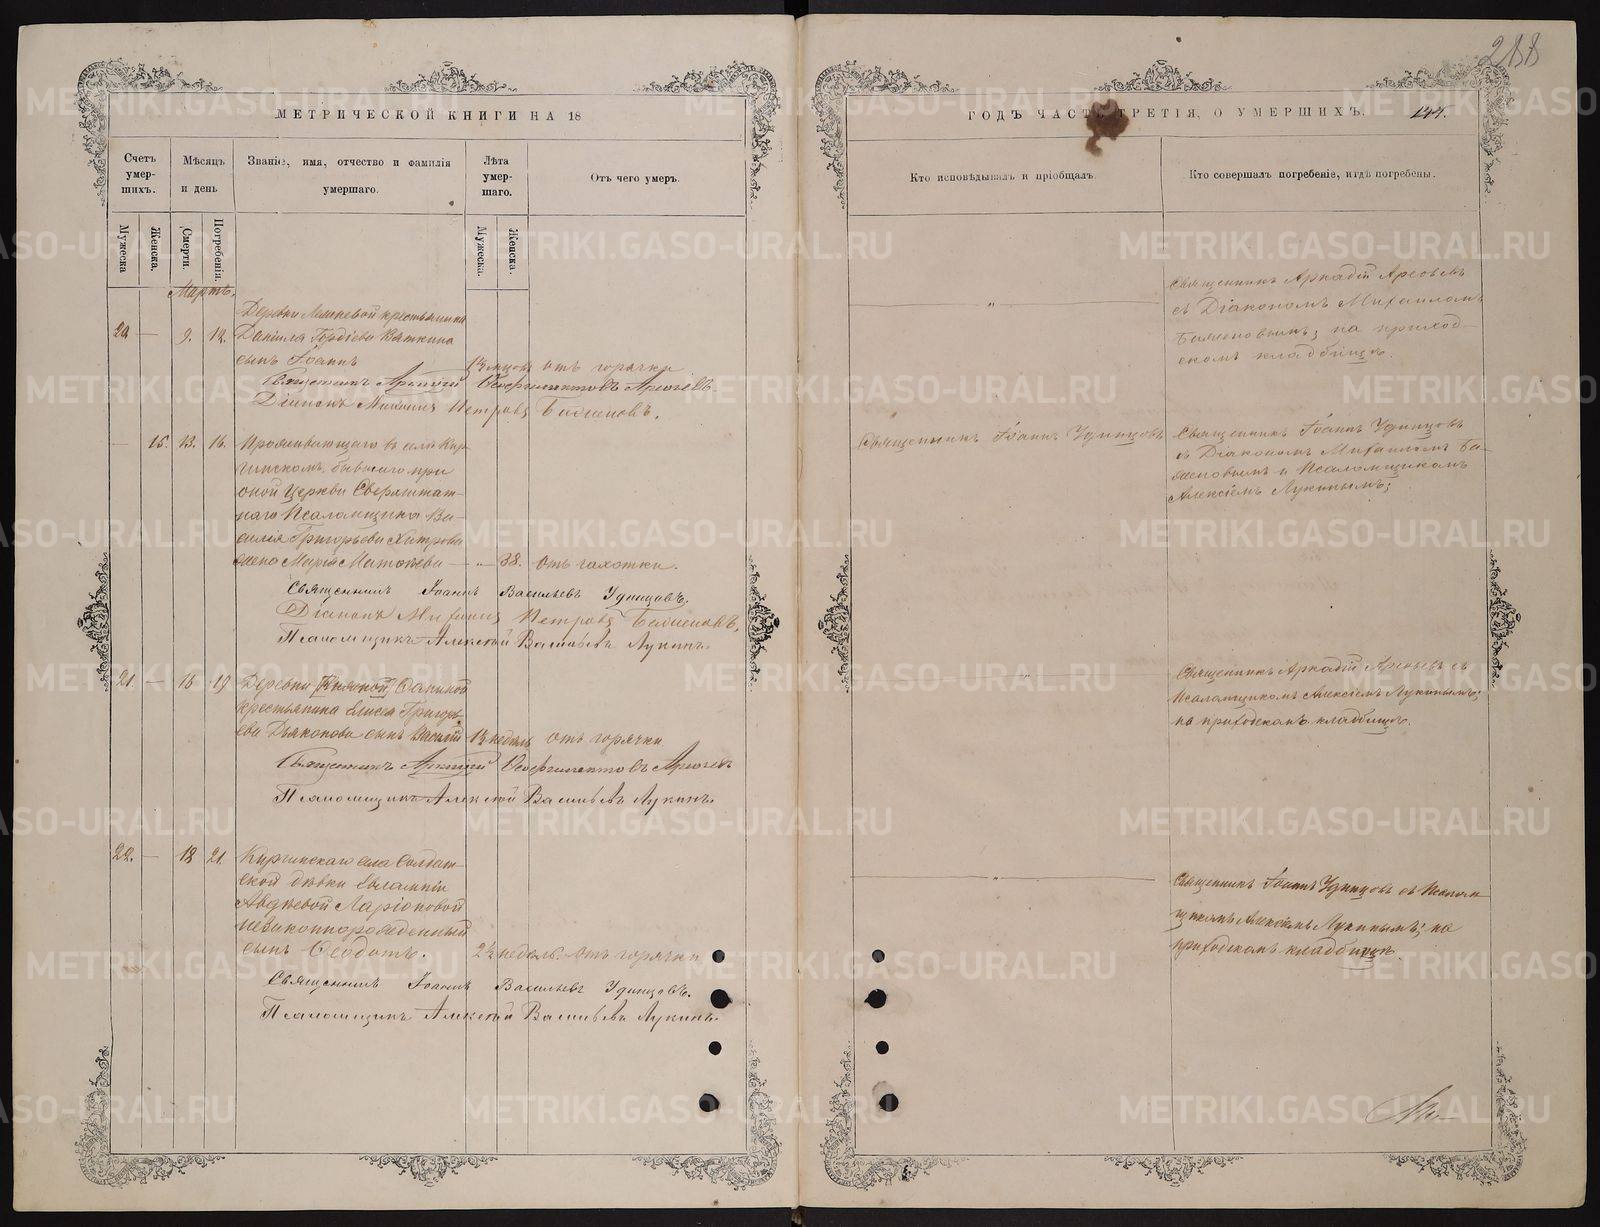 288
МЕТРИЧЕСКОЙ КНИГИ НА 18
Счетъ умер-шихъ.
Мѣсяцъ и день
Званіе, имя, отчество и фамилія умершаго.
Лѣта умер-шаго.
Отъ чего умеръ.
Мужеска
Женска.
Смерти.
Погребенія.
Мужеска.
Женска.
Мартъ.
Деревни крестьянина
20 — 9. 12. Даніила Гордіева Вяткина
сынъ Іоаннъ
1½ мѣсяц отъ горячки
Священникъ Аркадій Арсеьевъ.
Діаконъ Михаилъ Петровъ Баженовъ.
— 15. 13. 16. Проживающаго въ селѣ Кир-
гинскомъ, бывшаго при
оной Церкви Сверхштат-
наго Псаломщика Ва-
силія Григорьева Хитрова
жена Марія Матѳѣева — „ — 38. отъ чахотки.
Священникъ Іоаннъ Васильевъ Удинцовъ.
Діаконъ Михаилъ Петровъ Баженовъ.
Псаломщикъ Алексѣй Васильевъ Лукинъ.
21. — 16 19 Деревни
крестьянина Елисея Григорь-
ева Дьяконова сынъ Василій 1½ недѣль отъ горячки
Священникъ Аркадій Арсеьевъ
Псаломщикъ Алексѣй Васильевъ Лукинъ.
22. — 18 21. Киргинскаго села Солдат-
ской дѣвки Евлампіи
Авдѣевой Ларіоновой
незаконнорожденный
сынъ Ѳеодотъ. 2½ недѣль. отъ горячки
Священникъ Іоаннъ Васильевъ Удинцовъ.
Псаломщикъ Алексѣй Васильевъ Лукинъ.
ГОДЪ ЧАСТЬ ТРЕТІЯ, О УМЕРШИХЪ.
Кто исповѣдывалъ и пріобщалъ.
Кто совершалъ погребеніе, и гдѣ погребены.
„
Священникъ Аркадій Арсеьевъ
съ Діакономъ Михаиломъ
Баженовымъ; на приход-
скомъ кладбищѣ.
Священникъ Іоаннъ Удинцовъ
Священникъ Іоаннъ Удинцовъ
съ Діакономъ Михаиломъ Ба-
женовымъ и Псаломщикомъ
Алексѣемъ Лукинымъ;
„
Священникъ Аркадій Арсеньевъ съ
Псаломщикомъ Алексѣемъ Лукинымъ;
на приходскомъ кладбищѣ.
„
Священникъ Іоаннъ Удинцовъ съ Псалом-
щикомъ Алексѣемъ Лукинымъ; на
приходскомъ кладбищѣ.
METRIKI.GASO-URAL.RU